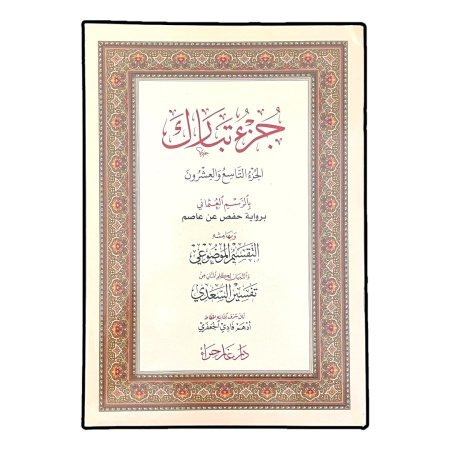 جزء تبارك
الجزء التاسع والعشرون
بالرسم العثماني
برواية حفص عن عاصم
وبهامشه
التقسيم الموضوعي
تفسير السعدي
أدهم فادي الجعفري
دار غار حراء